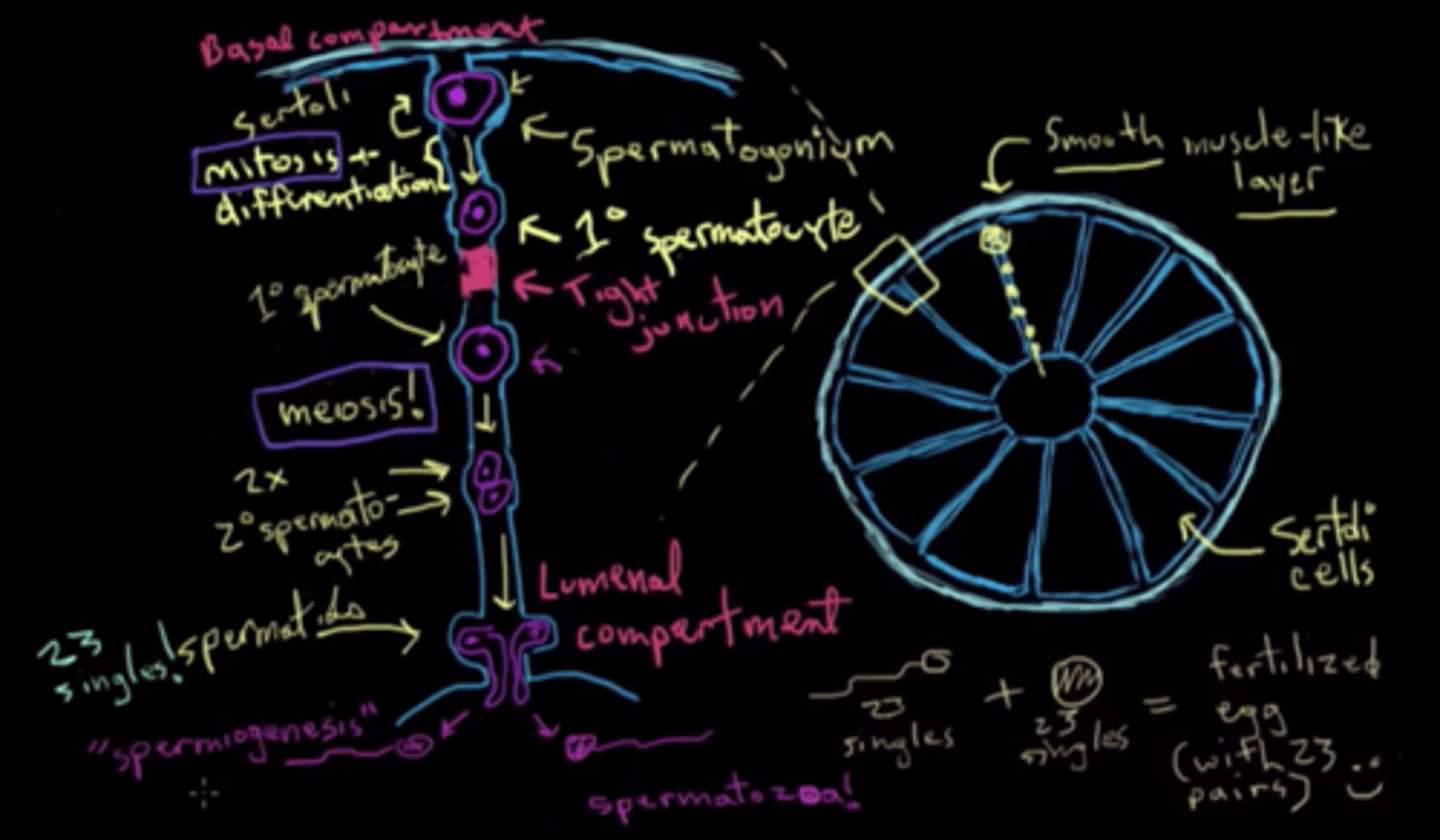 Basal compartment
Sertoli
mitosis +
differentiation
Spermatogonium
1° spermatocyte
1° spermatocyte
Tight
junction
meiosis!
2x
2° spermato-
cytes
Lumenal
compartment
23
singles!
spermatids
"spermiogenesis"
spermatozoa!
Smooth muscle-like
layer
Sertoli
cells
23
singles
+
23
singles
=
fertilized
egg
(with 23
pairs)